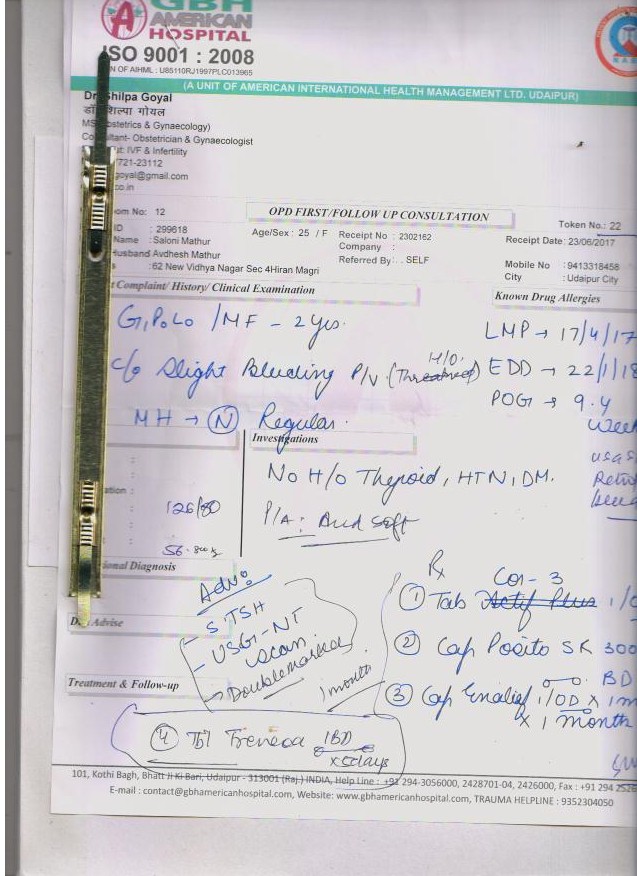 GBH
AMERICAN
HOSPITAL
ISO 9001 : 2008
N OF AIHML : U85110RJ1997PLC013965
(A UNIT OF AMERICAN INTERNATIONAL HEALTH MANAGEMENT LTD. UDAIPUR)
Dr. Shilpa Goyal
डॉ. शिल्पा गोयल
MS Obstetrics & Gynaecology)
Consultant- Obstetrician & Gynaecologist
IVF & Infertility
721-23112
goyal@gmail.com
co.in
om No: 12
OPD FIRST/FOLLOW UP CONSULTATION
Token No.: 22
ID : 299618
Age/Sex : 25 / F
Receipt No : 2302162
Receipt Date : 23/06/2017
Name : Saloni Mathur
Company :
Husband Avdhesh Mathur
Referred By : . SELF
Mobile No : 9413318458
s : 62 New Vidhya Nagar Sec 4Hiran Magri
City : Udaipur City
t Complaint/ History/ Clinical Examination
Known Drug Allergies
G1P0L0 /MF - 2 yrs.
LMP → 17/4/17
H/O.
c/o Slight Bleeding P/V (Threatened)
EDD → 22/1/18
POG → 9.4
Week
MH → (N) Regular.
Investigations
No H/o Thyroid, HTN, DM.
126/80
P/A: And soft
56.
ional Diagnosis
Advo
- S.TSH
- USG-NT
scan.
→ Double marker
1 month
Diet Advise
Rx
Cor-3
① Tab Actif Plus 1/0
② Cap Posito SK 300
BD
③ Cap Enalief 1/OD x 1m
x 1 month
Treatment & Follow-up
④ Tbl Treneoa 1BD
days
101, Kothi Bagh, Bhatt Ji Ki Bari, Udaipur - 313001 (Raj.) INDIA, Help Line : +91 294-3056000, 2428701-04, 2426000, Fax : +91 294 2526
E-mail : contact@gbhamericanhospital.com, Website: www.gbhamericanhospital.com, TRAUMA HELPLINE : 9352304050